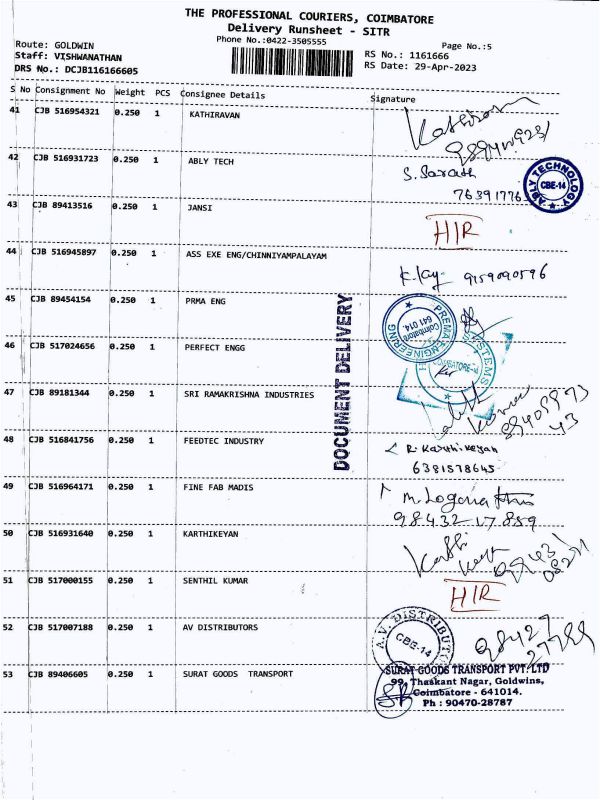 THE PROFESSIONAL COURIERS, COIMBATORE
Delivery Runsheet - SITR
Phone No.:0422-3505555
Page No.:5
Route: GOLDWIN
Staff: VISHWANATHAN
RS No.: 1161666
DRS No.: DCJB116166605
RS Date: 29-Apr-2023
S No Consignment No Weight PCS Consignee Details Signature
41 CJB 516954321 0.250 1 KATHIRAVAN
42 CJB 516931723 0.250 1 ABLY TECH S. Sarath
76391776
ABLY TECHNOLOGY CBE-14
43 CJB 89413516 0.250 1 JANSI HIR
44 CJB 516945897 0.250 1 ASS EXE ENG/CHINNIYAMPALAYAM 9159090596
45 CJB 89454154 0.250 1 PRMA ENG
Coimbatore 641 014.
DOCUMENT DELIVERY
46 CJB 517024656 0.250 1 PERFECT ENGG
SYSTEMS
47 CJB 89181344 0.250 1 SRI RAMAKRISHNA INDUSTRIES
48 CJB 516841756 0.250 1 FEEDTEC INDUSTRY R. Karthikeyan
6381578645
49 CJB 516964171 0.250 1 FINE FAB MADIS
98432 17859
50 CJB 516931640 0.250 1 KARTHIKEYAN
51 CJB 517000155 0.250 1 SENTHIL KUMAR HIR
52 CJB 517007188 0.250 1 AV DISTRIBUTORS
A.V. DISTRIBUT CBE-14
98427
27788
53 CJB 89406605 0.250 1 SURAT GOODS TRANSPORT
SURAT GOODS TRANSPORT PVT. LTD
99, Thaskant Nagar, Goldwins,
Coimbatore - 641014.
Ph : 90470-28787